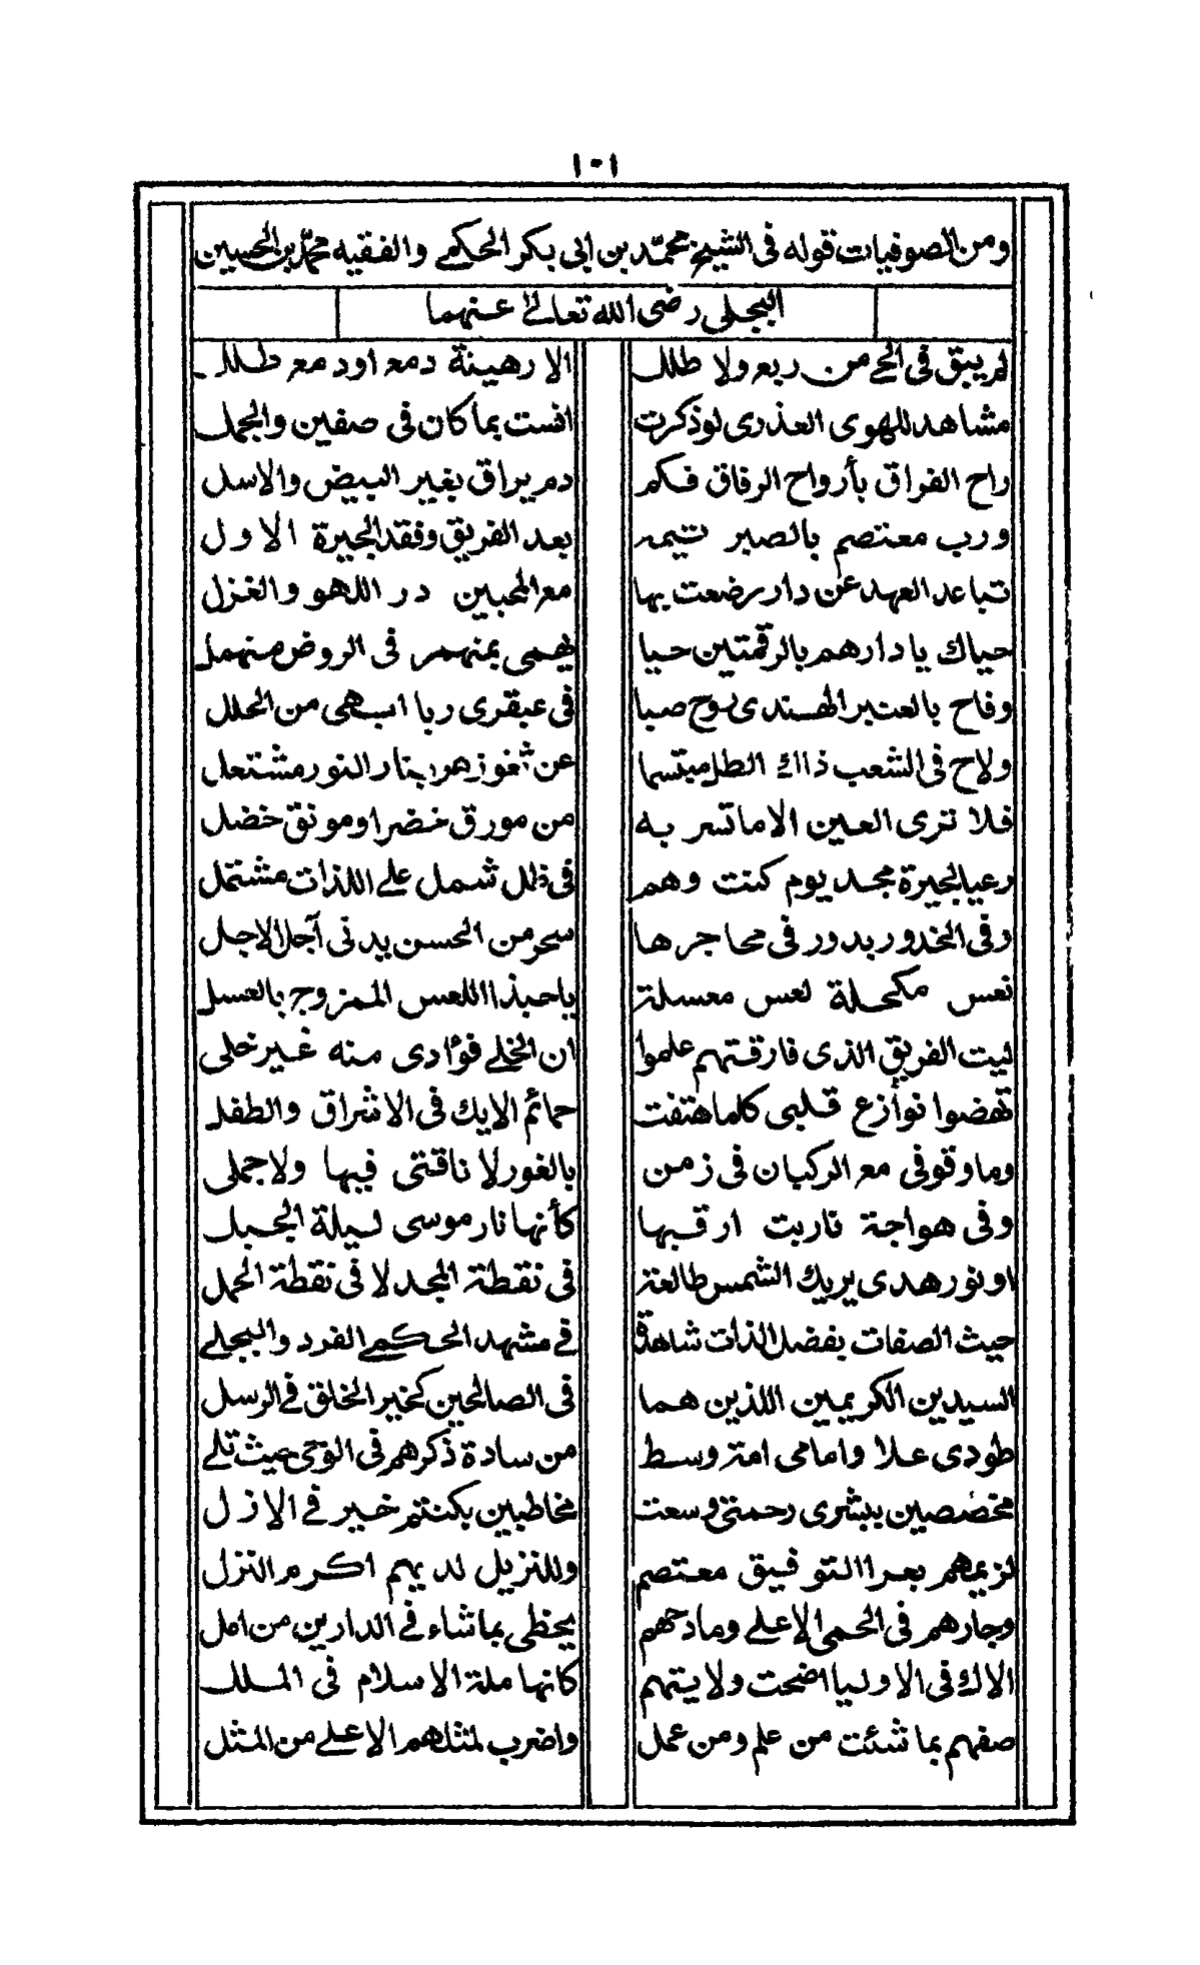 ١٠١
ومن الصوفيات قوله فى الشيخ محمد بن ابى بكر الحكمى والفقيه محمد بن الحسين
البجلى رضى الله تعالى عنهما
لم يبق فى الحى من ربع ولا طلل الا رهينة دمع او دمع طلل
مشاهد للهوى العذرى لو ذكرت انست بما كان فى صفين والجمل
راح الفراق بأرواح الرفاق فكم دم يراق بغير البيض والاسل
ورب معتصم بالصبر تيمه بعد الفريق وفقد الجيرة الاول
تباعد العهد عن دار رضعت بها مع المحبين در اللهو والغزل
حياك يا دارهم بالرقمتين حيا يهمى بمنهمر فى الروض منهمل
وفاح بالعنبر الهندى نوح صبا فى عبقرى ربا ابهى من الحلل
ولاح فى الشعب ذاك الطل مبتسما عن ثغو زهر بنار النور مشتعل
فلا ترى العين الا ما تسر به من مورق خضر او مونق خضل
رعيا لجيرة مجد يوم كنت وهم فى ذلك شمل على اللذات مشتمل
وفى الخدور بدور فى محاجرها سحر من الحسن يدنى آجل الاجل
نعس مكحلة لعس معسلة ياحبذا اللعس الممزوج بالعسل
ليت الفريق الذى فارقتهم علموا ان الخلى فؤادى منه غير خلى
نهضوا نوازع قلبى كلما هتفت حمائم الايك فى الاشراق والطفل
وما وقوفى مع الركبان فى زمن بالغور لا ناقتى فيها ولا جملى
وفى هواجة نار بت ارقبها كأنها نار موسى ليلة الجبل
او نور هدى يريك الشمس طالعة فى نقطة المجد لا فى نقطة الحمل
حيث الصفات بفضل الذات شاهدة فى مشهد الحكمى الفرد والبجلى
السيدين الكريمين اللذين هما فى الصالحين كخير الخلق فى الرسل
طودى علا وامامى امة وسط من سادة ذكرهم فى الوحى حيث تلى
مخصصين ببشرى رحمتى وسعت مخاطبين بكنتم خير فى الازل
لزيمهم بعرا التوفيق معتصم وللنزيل لديهم اكرم النزل
وجارهم فى الحمى الاعلى ومادحهم يحظى بما شاء فى الدارين من امل
الاك فى الاوليا اضحت ولايتهم كانها ملة الاسلام فى الملل
صفهم بما شئت من علم ومن عمل واضرب لمثلهم الاعلى من المثل